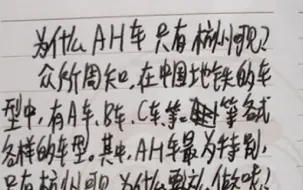 为什么AH车只有杭州可见？
众所周知，在中国地铁的车
型中，有A车、B车、C车、等等各式
各样的车型。其中，AH车最为特别，
只有杭州可见，为什么要这么做呢？